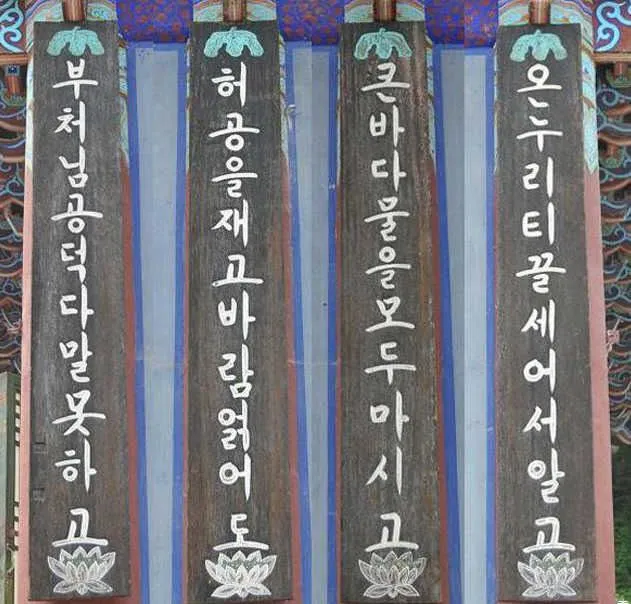 온누리티끌세어서알고
큰바다물을모두마시고
허공을재고바람얽어도
부처님공덕다말못하고